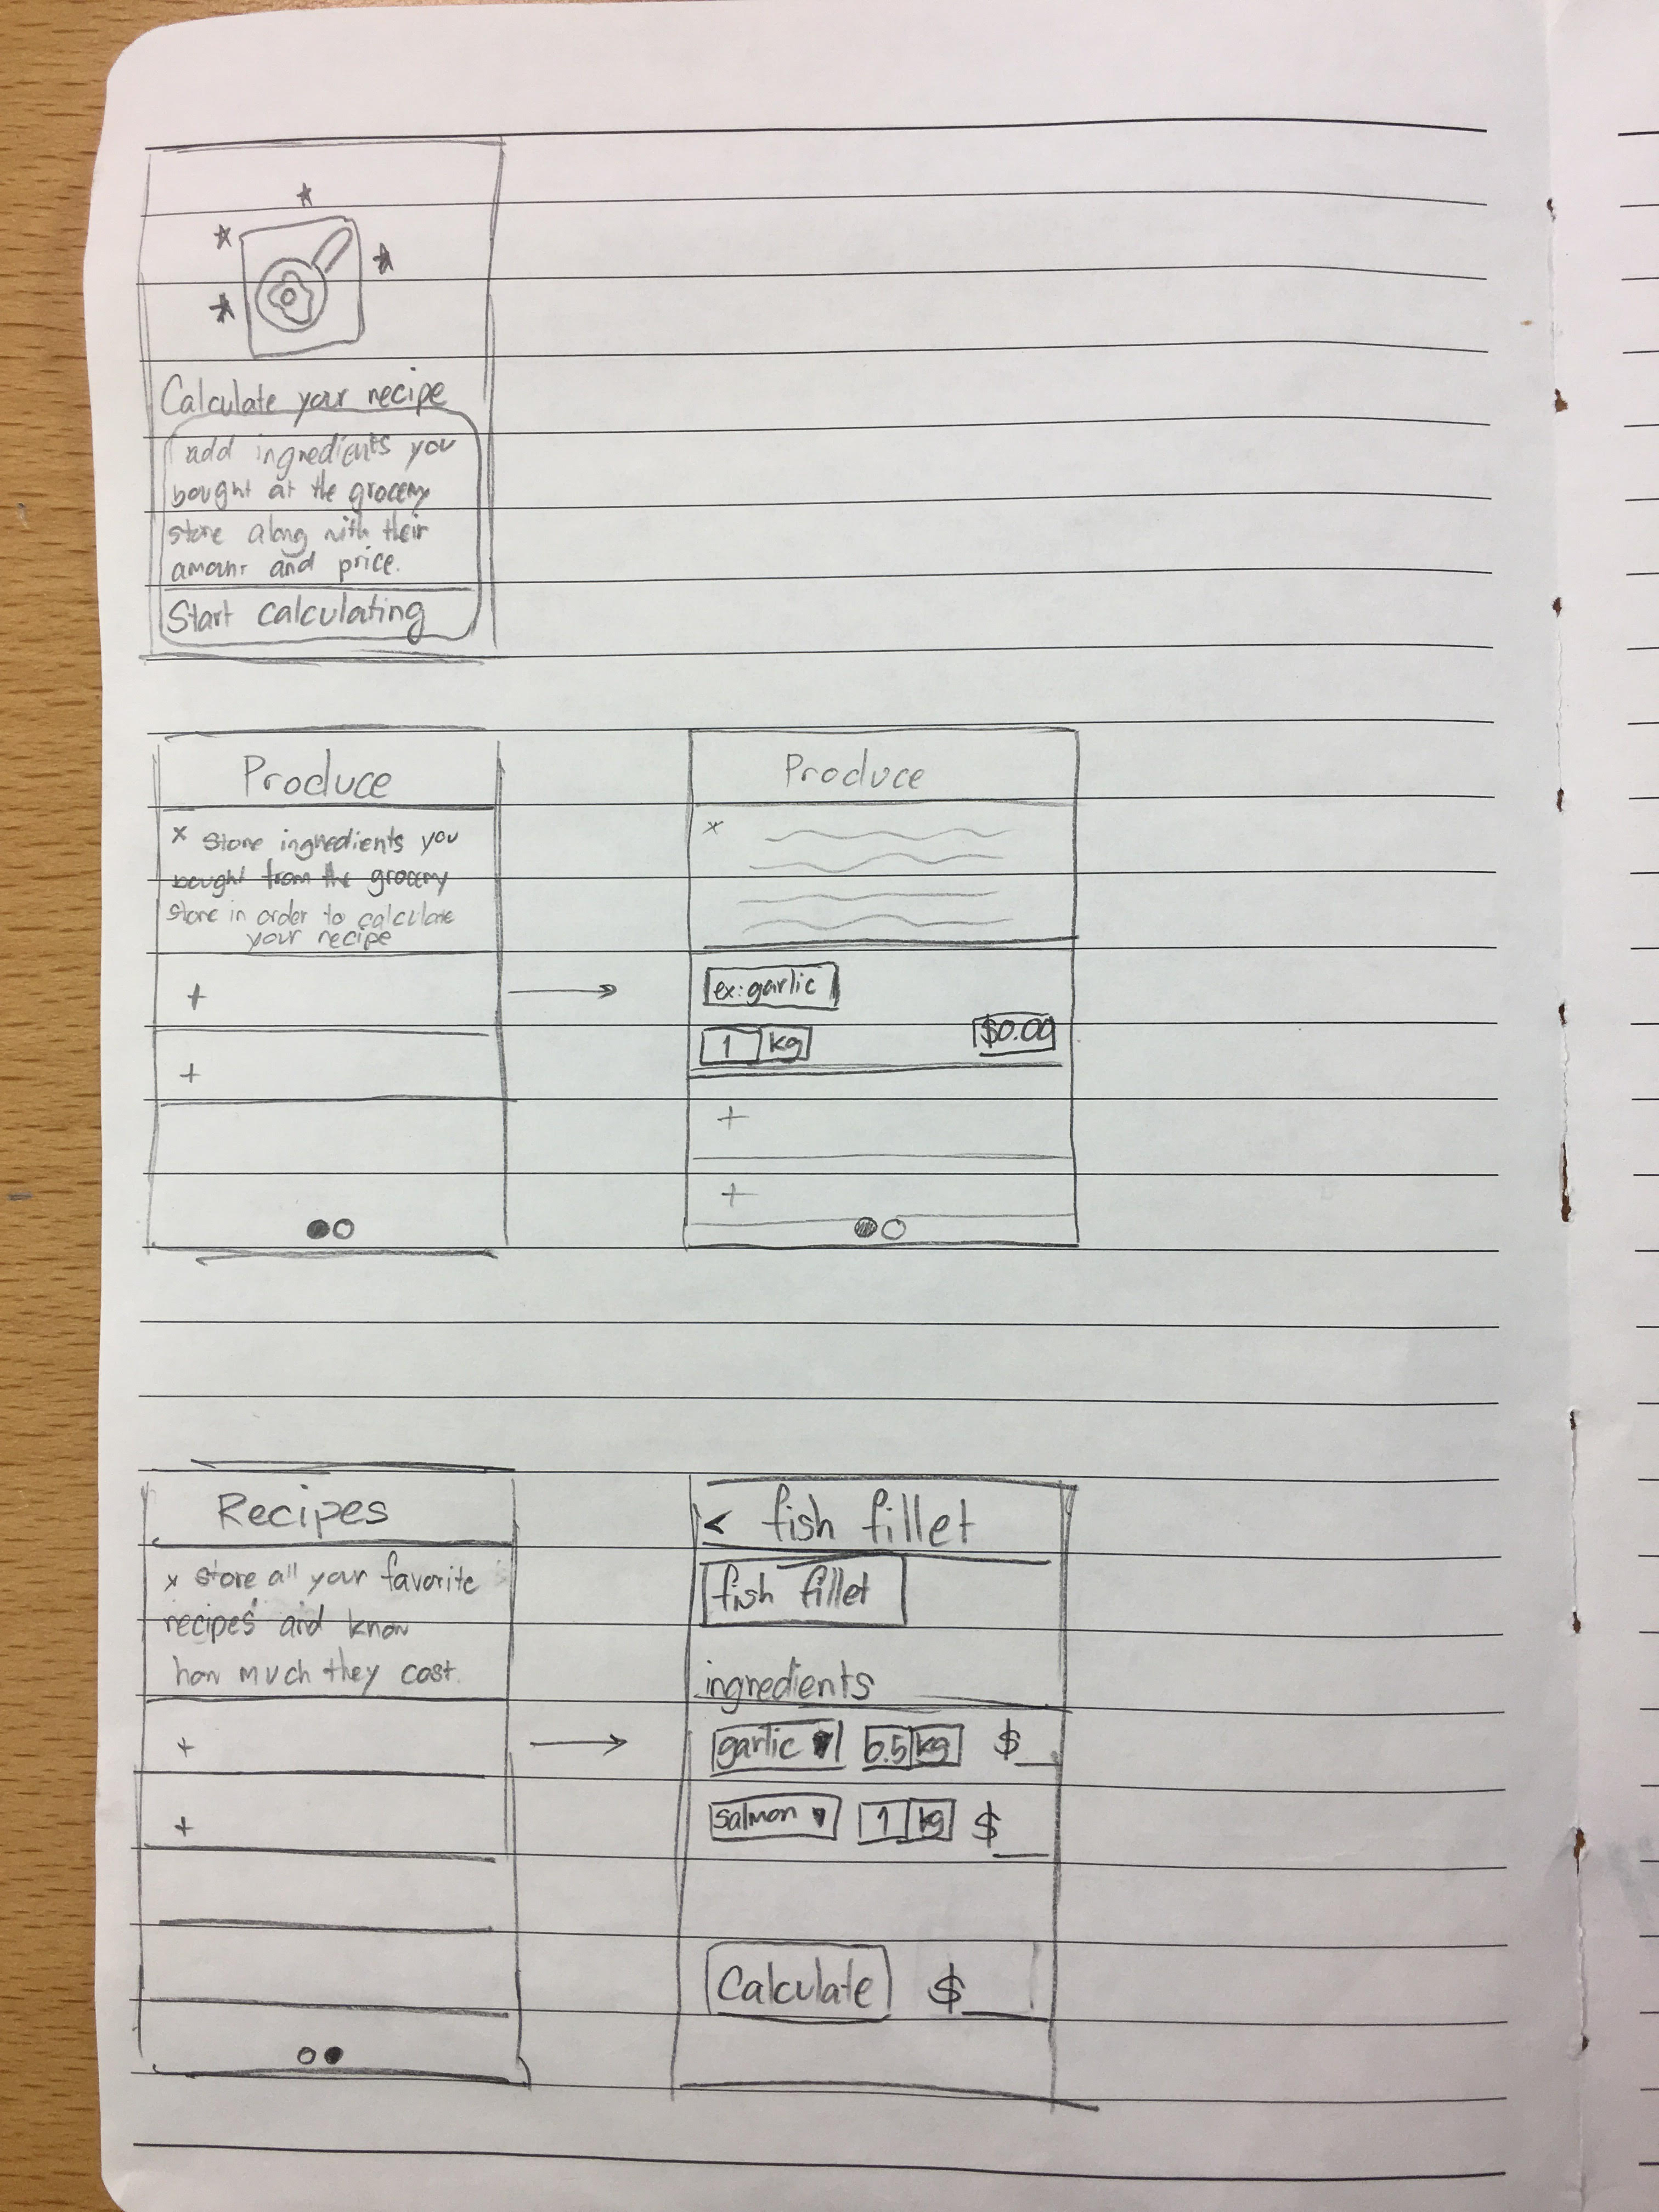 Calculate your recipe
add ingredients you
bought at the grocery
store along with their
amount and price.
Start calculating
Produce
x store ingredients you
bought from the grocery
store in order to calculate
your recipe
+
+
Produce
x
ex: garlic
1 kg $0.00
+
+
Recipes
x store all your favorite
recipes and know
how much they cost.
+
+
< fish fillet
fish fillet
ingredients
garlic ▼ 0.5 kg $__
salmon ▼ 1 kg $__
Calculate $___